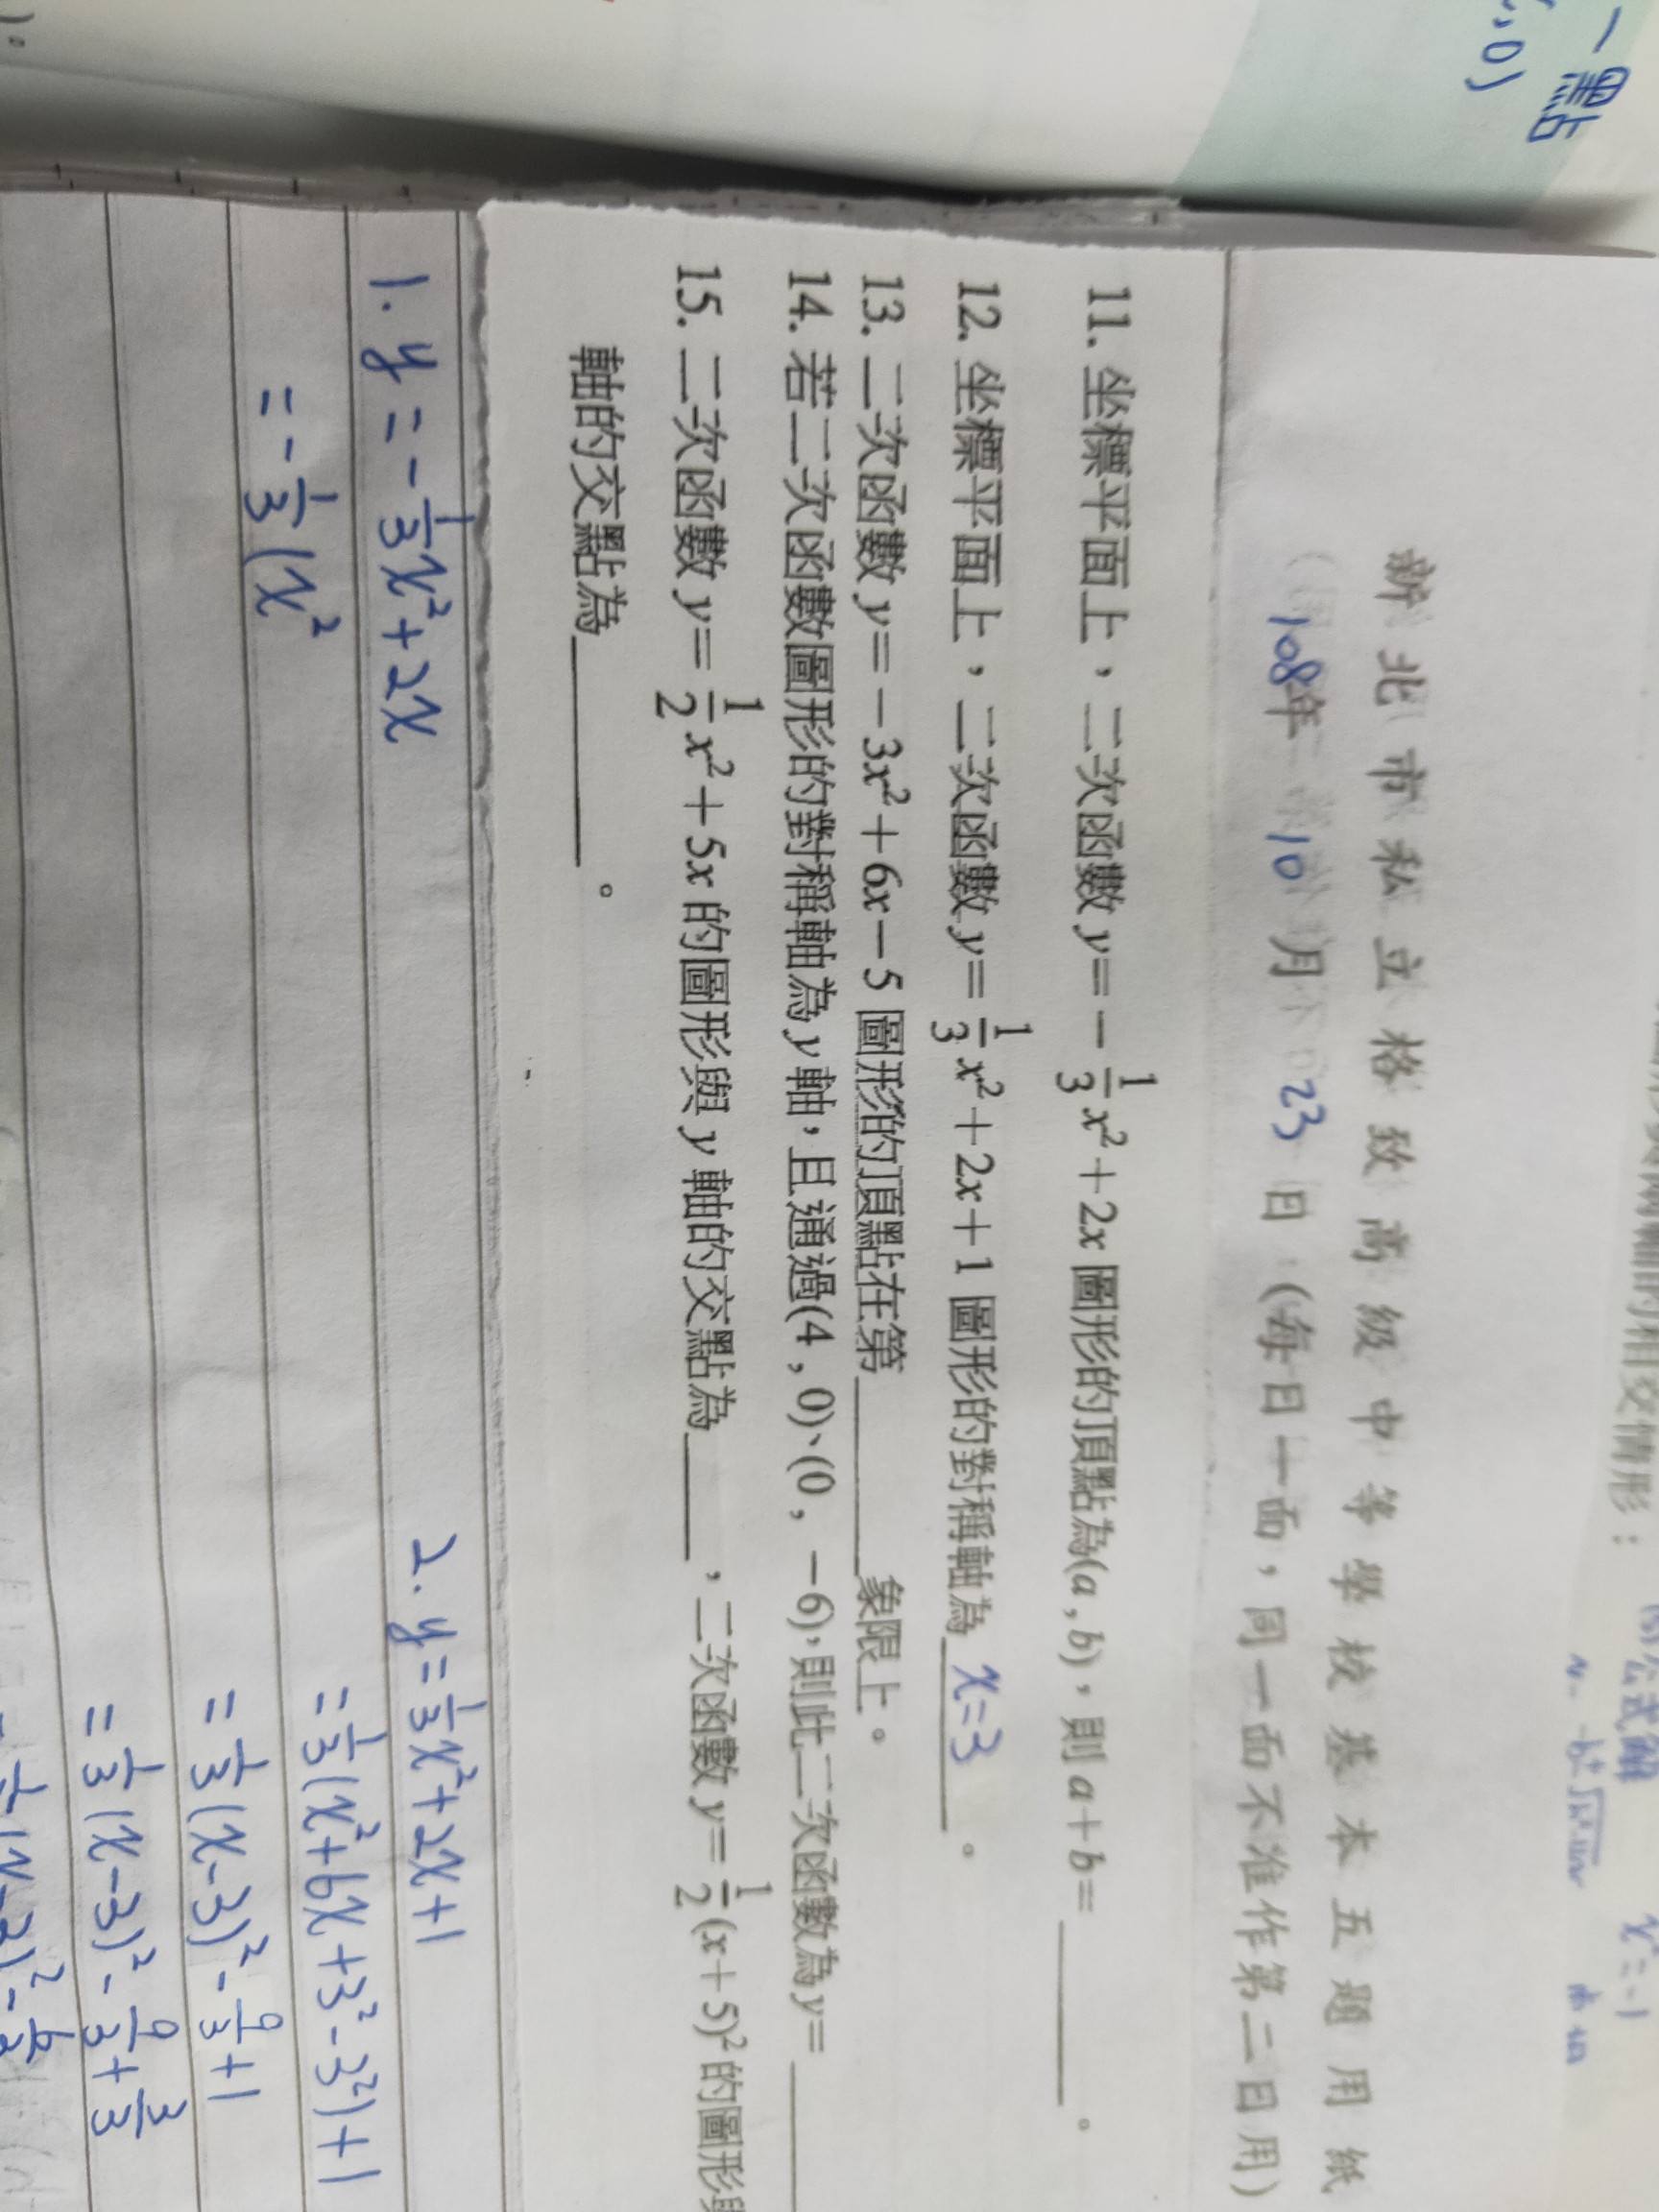 一點
,0)
公式解
x=-1
新北市私立格致高級中等學校基本五題用紙
108年 10月 23日 (每日一面，同一面不准作第二日用)
11. 坐標平面上，二次函數 y=－1/3x²＋2x 圖形的頂點為(a , b)，則 a＋b=＿＿＿＿＿。
12. 坐標平面上，二次函數 y=1/3x²＋2x＋1 圖形的對稱軸為 x=3 。
13. 二次函數 y=－3x²＋6x－5 圖形的頂點在第＿＿＿＿＿象限上。
14. 若二次函數圖形的對稱軸為 y 軸，且通過(4 , 0)、(0 , －6)，則此二次函數為 y=＿＿＿＿
15. 二次函數 y=1/2x²＋5x 的圖形與 y 軸的交點為＿＿＿＿，二次函數 y=1/2(x＋5)²的圖形與
軸的交點為＿＿＿＿＿。
1. y=-1/3x²+2x
=-1/3(x²
2. y=1/3x²+2x+1
=1/3(x²+6x+3²-3²)+1
=1/3(x-3)²-9/3+1
=1/3(x-3)²-9/3+3/3